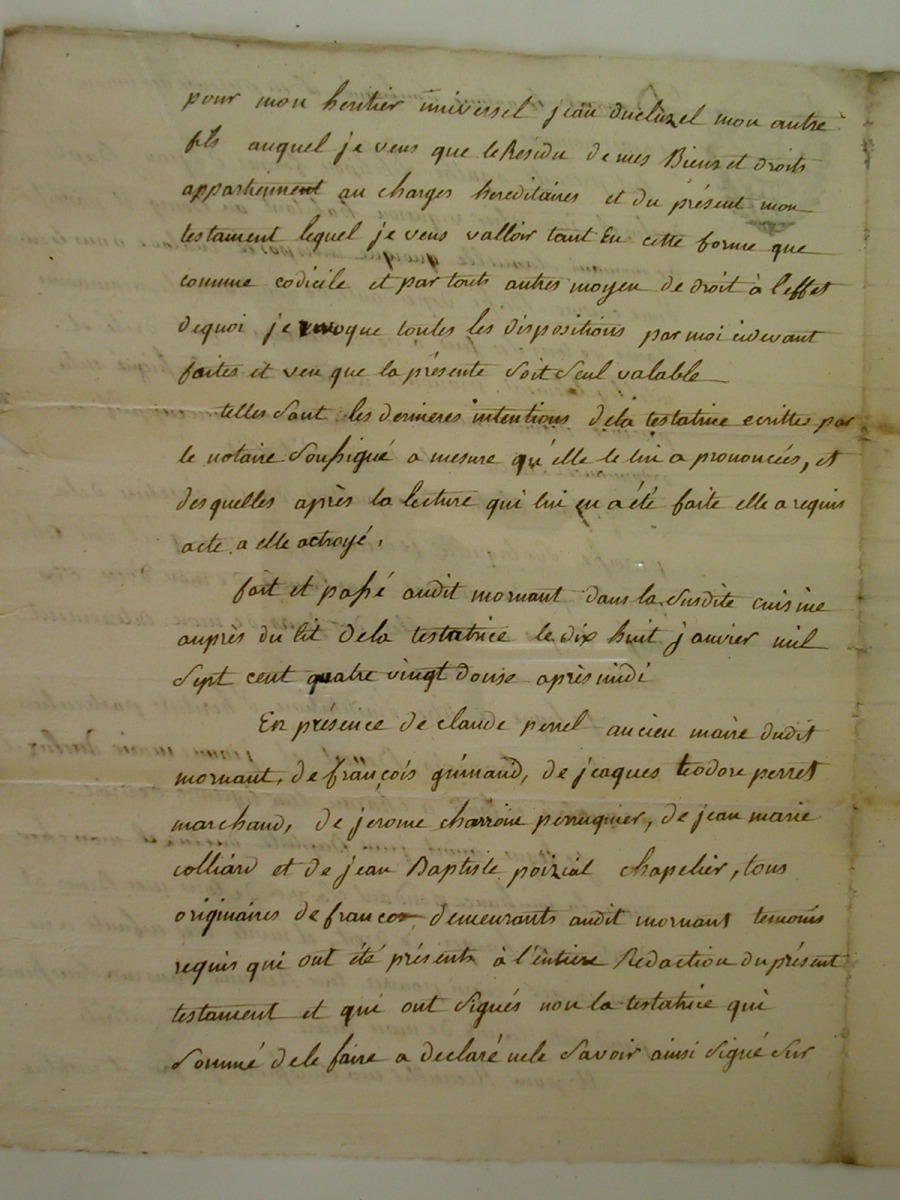 pour mon heritier universel jean ducluzel mon autre
fils auquel je veus que le Residu de mes Biens et droits
appartiennent au charges hereditaires et du présent mon
testament lequel je veus valloir tant En cette forme que
comme codicile et par touts autres moyen de droit à l'effet
de quoi je revoque toutes les dispositions par moi cidevant
faites et veu que la présente soit seul valable
telles sont les dernieres intentions de la testatrice ecrittes par
le notaire soussigué a mesure qu'elle le lui a prononcées, et
desquelles après la lecture qui lui en a été faite elle a requis
acte a elle octroyé,
fait et passé audit mornant dans la susdite cuisine
auprès du lit de la testatrice le dix huit janvier mil
sept cent quatre vingt douse après midi
En présence de claude perrel ancien maire dudit
mornant, de françois grimaud, de jcaques teodore perret
marchand, de jerome charroin perruquier, de jean marie
colliard et de jean Baptiste poizial chapelier, tous
originaires de france demeurants audit mornant temoins
requis qui ont été présents à l'entiere Redaction du présent
testament et qui ont signés non la testatrice qui
sommé de le faire a declaré ne le savoir ainsi signé sur